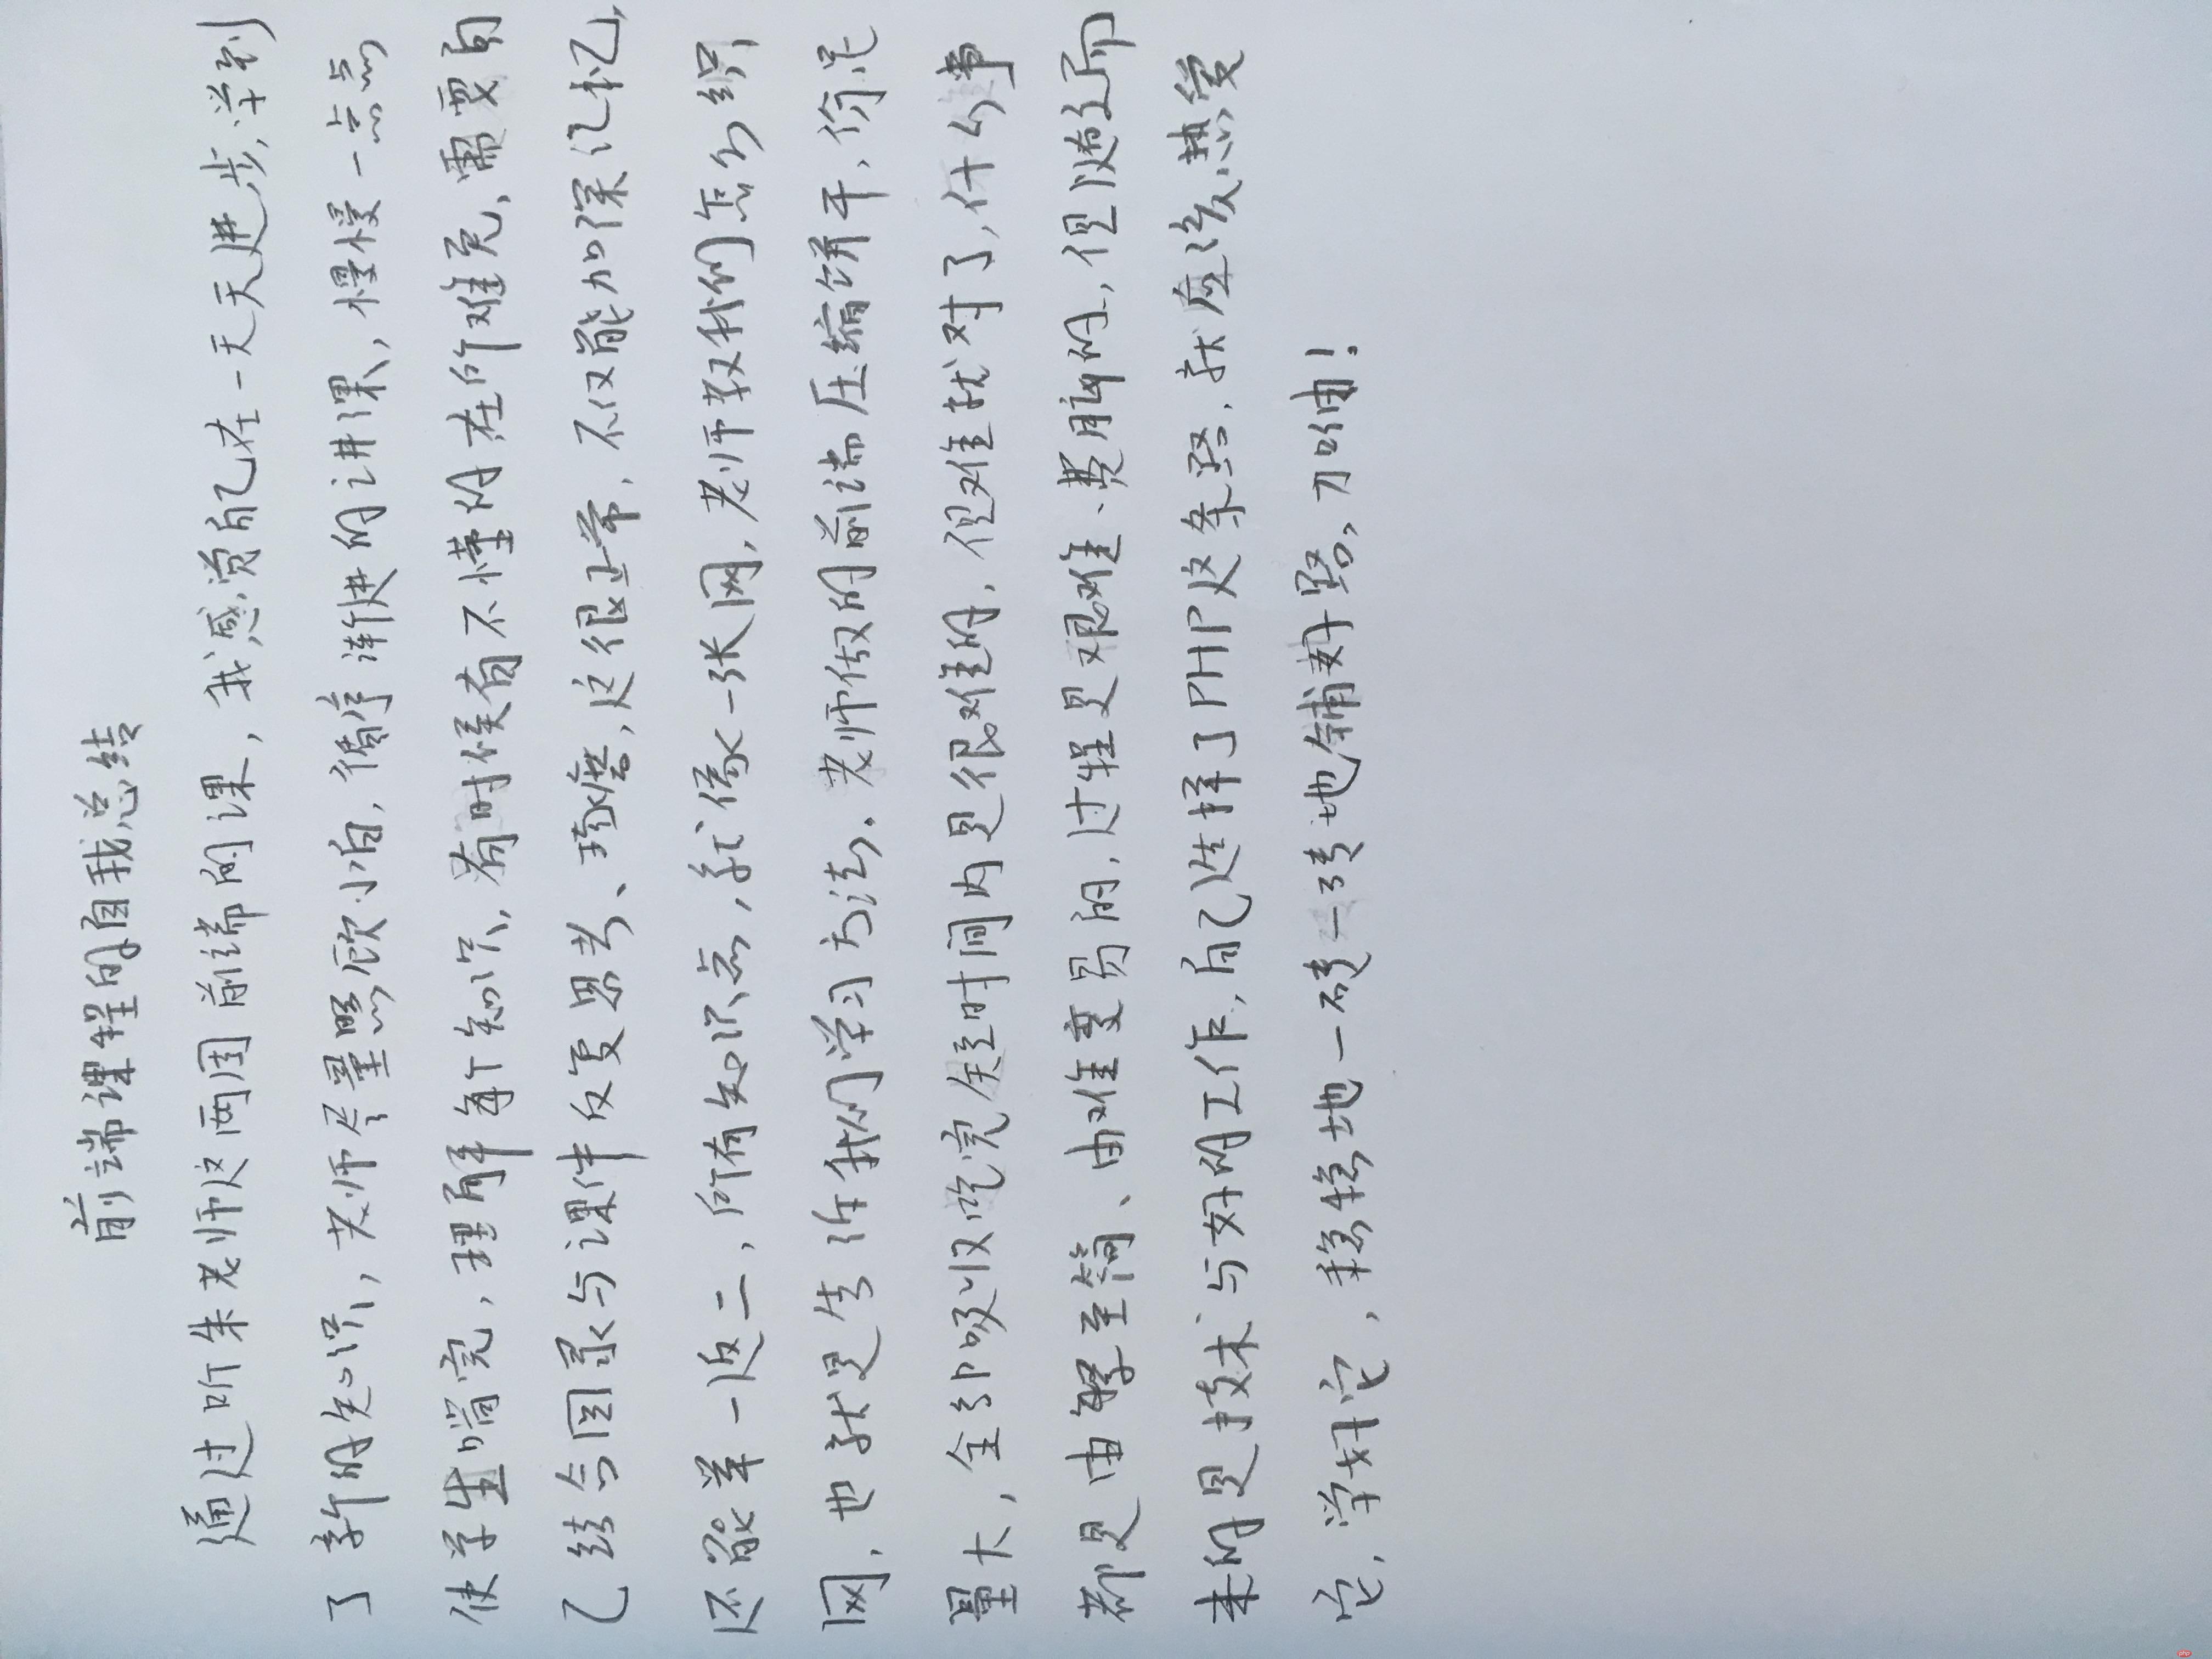 前端课程的自我总结
通过听朱老师这两周前端的课，我感觉自己在一天天进步，学到
了新的知识，老师尽量照顾小白，循序渐进的讲课，慢慢一点点
使学生啃完，理解每个知识，有时候有不懂的在所难免，需要自
己结合回录与课件反复思考、琢磨，这很正常，不仅能加深记忆，
还能举一返二，所有知识点，就像一张网，老师教我们怎么织
网，也就是告诉我们学习方法。老师做的前端压缩饼干，份足
量大，全部吸收吃完短时间内是很难的，但难就对了，什么事
都是由繁至简、由难变易的，过程是艰难、费脑的，但随之而
来的是技术与好的工作，自己选择了PHP这条路，就应该热爱
它，学好它，稳稳地一砖一砖地铺好路，加油！
php